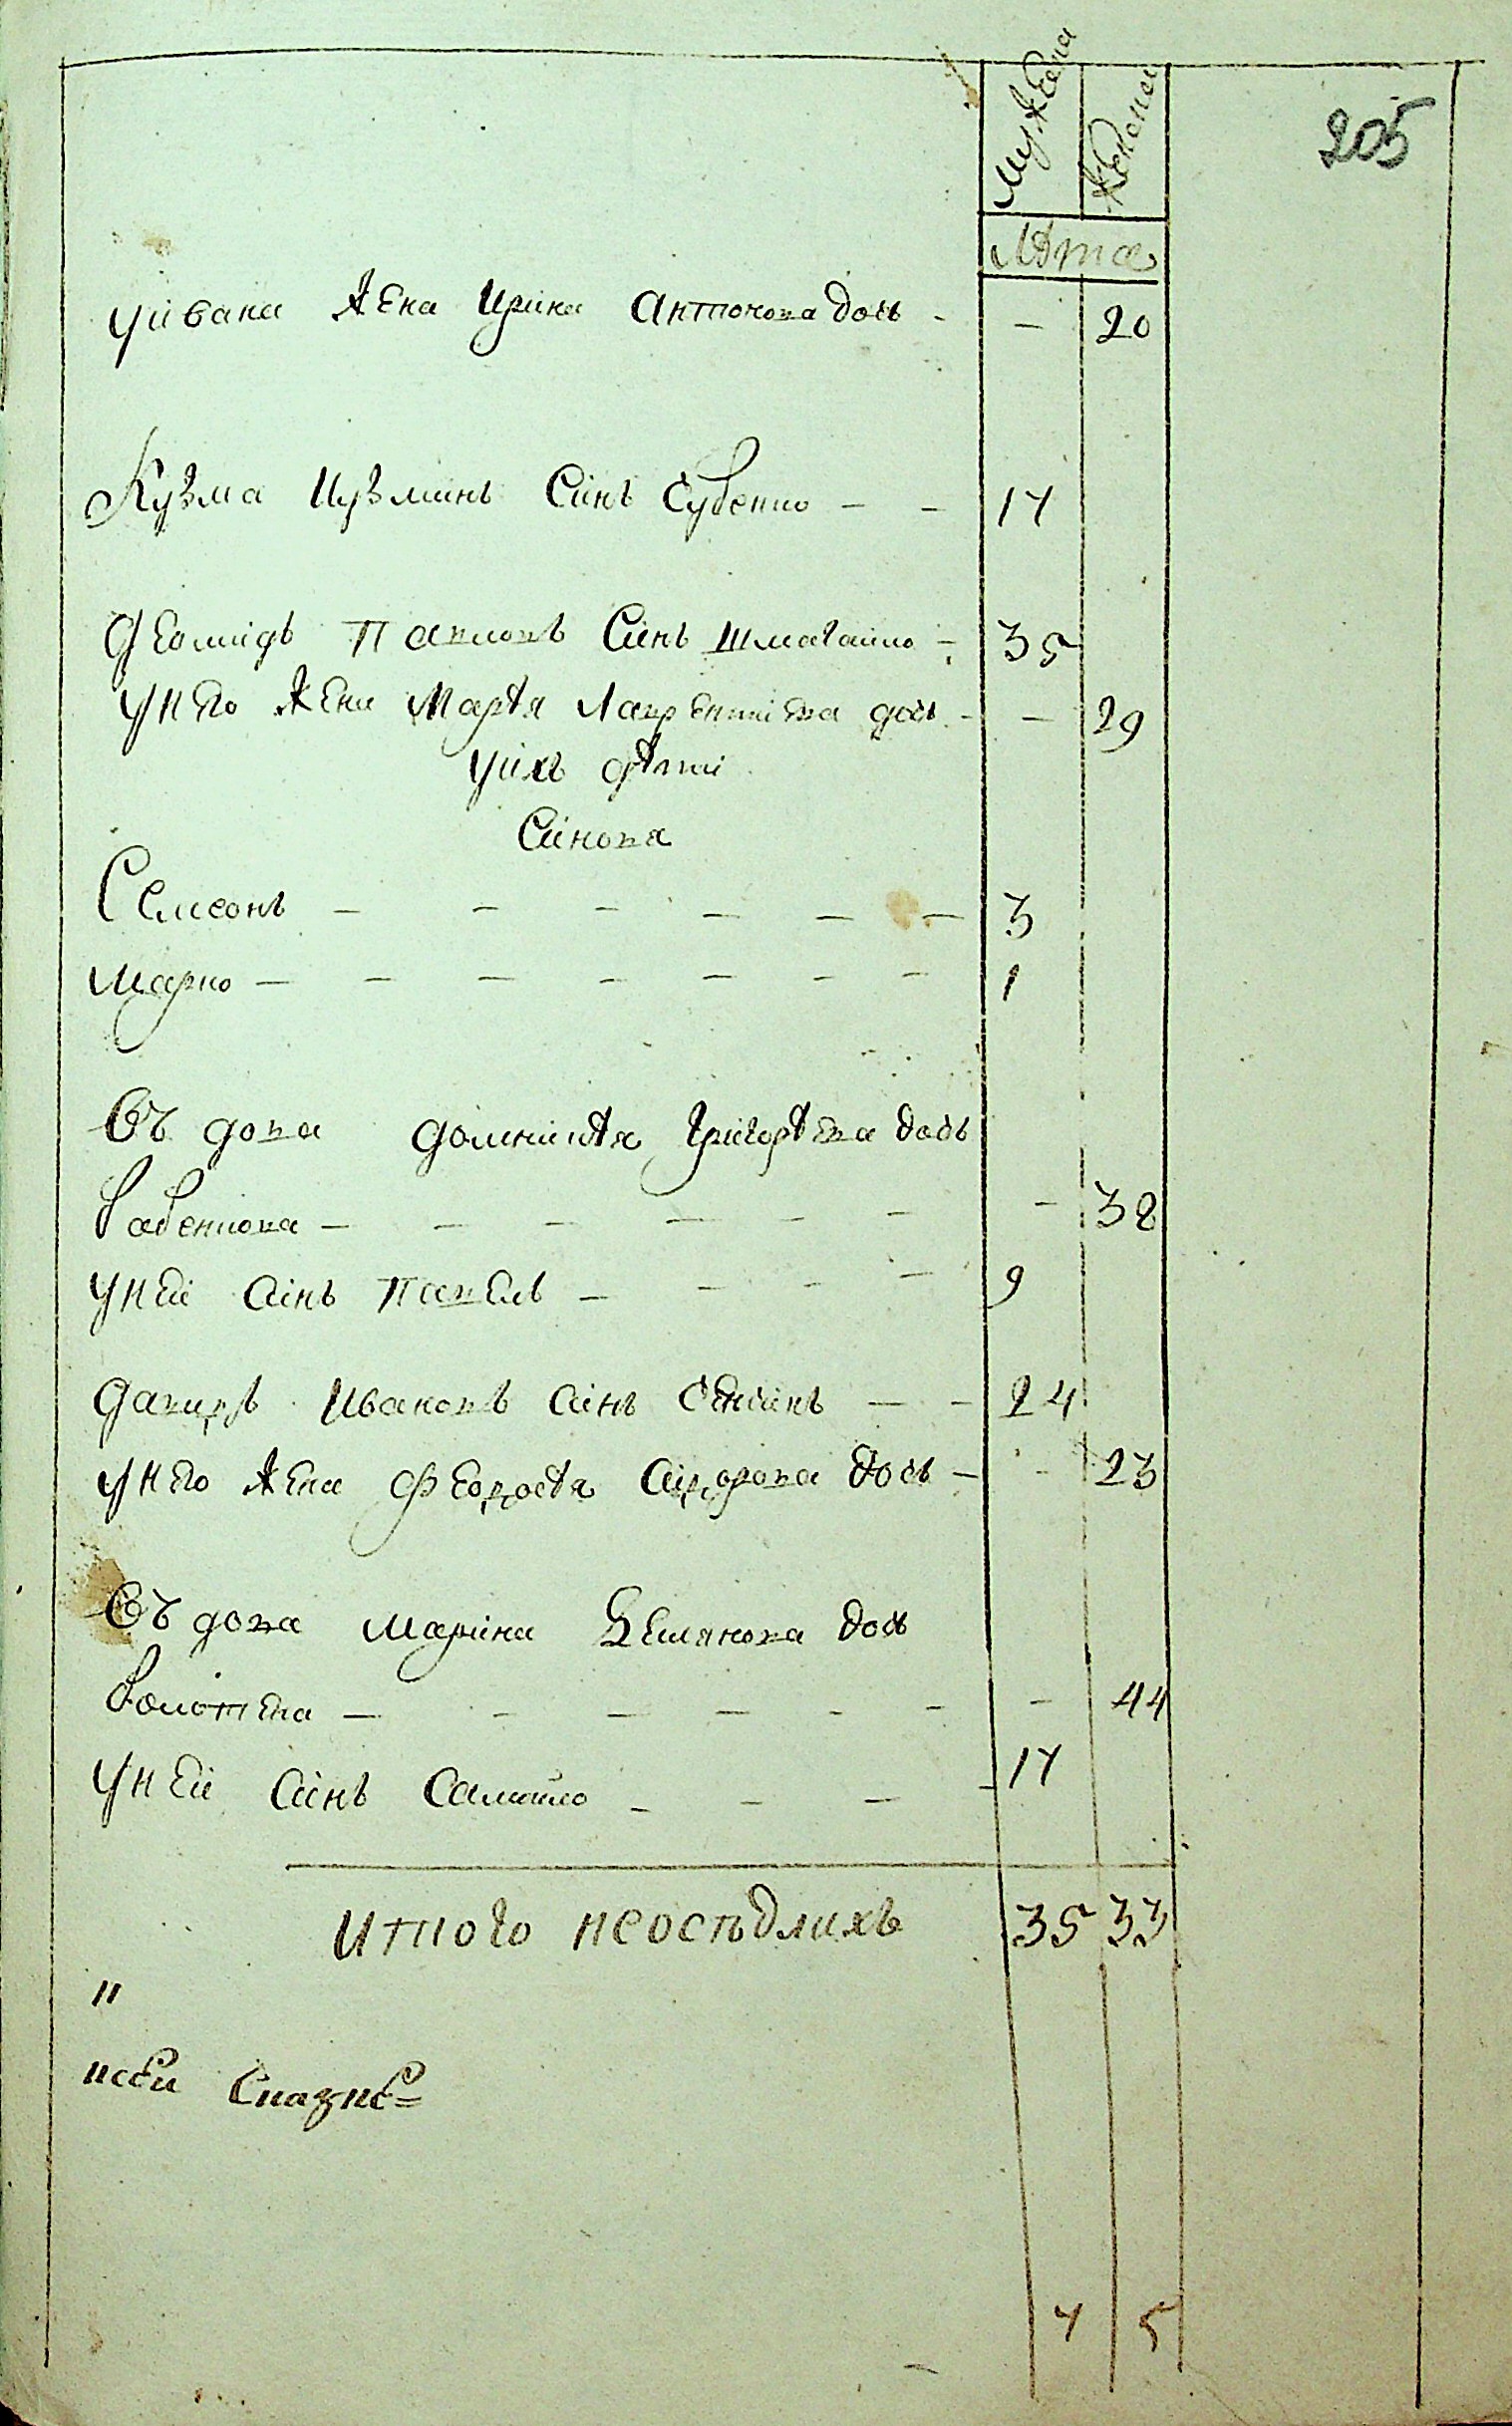 205
мужеска женска
лѣта
уивана жена Ирина Антонова дочь - - 20
Кузма Кузминъ Синъ Губенко - - 17
Демидъ Павловъ Синъ Шмагайло - 35
унего жена Марѣя Лаврентиева дочь - - 29
уихъ дѣти
Синова
Симеонъ - - - - - - 3
Марко - - - - - - - 1
Въдова Домникѣя Григорѣева дочь
Бабенкова - - - - - - - 38
уней Синъ Павелъ - - - - 9
Давидъ Ивановъ Синъ - - 24
унего жена Феодосѣя Сидорова дочь - - 23
Въдова Марина Демянова дочь
- - - - - - - 44
уней Синъ Самойло - - - - 17
Итого неосѣдлихъ 35 33
"
4 5